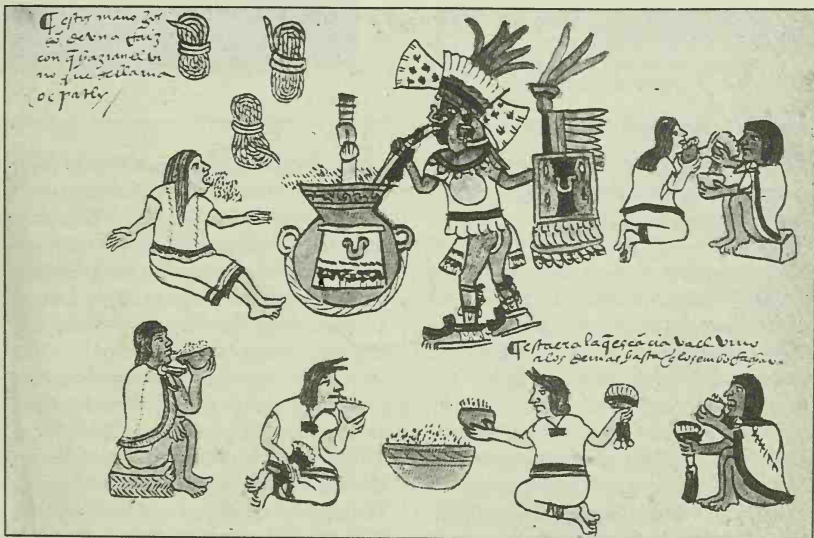 estos manogos
sō de vna rraiz
con q̄ hazian el vi
no que se llama
ocpatly
esta era la q̄ escācia va el vino
a los demas hasta q̄ los emborrachava